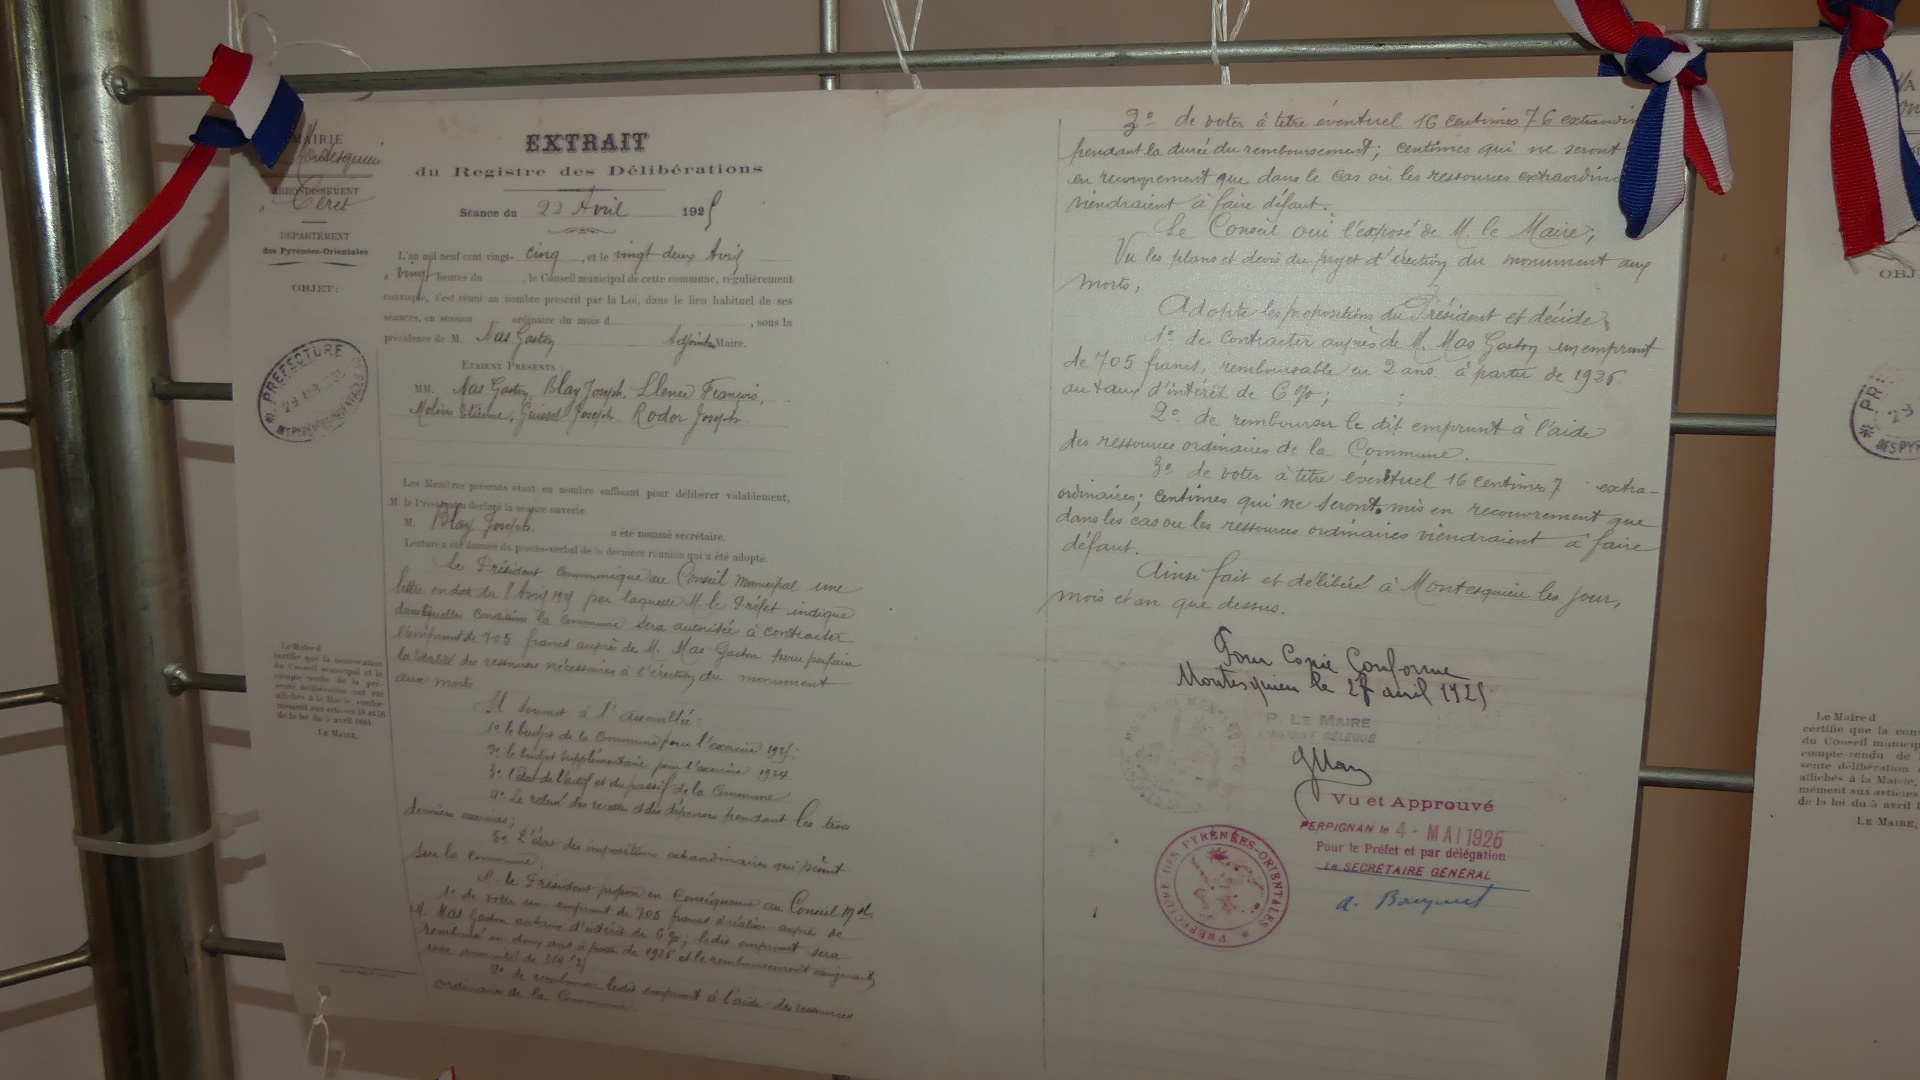 MAIRIE
Montesquieu
ARRONDISSEMENT
d Céret
DÉPARTEMENT
des Pyrénées-Orientales
OBJET:
PREFECTURE
EXTRAIT
du Registre des Délibérations
Séance du 22 Avril 1925
L'an mil neuf cent vingt- cinq, et le vingt deux Avril
à vingt heures du , le Conseil municipal de cette commune, régulièrement
convoqué, s'est réuni au nombre prescrit par la Loi, dans le lieu habituel de ses
séances, en session ordinaire du mois d , sous la
présidence de M. Mas Gaston Adjoint Maire.
ETAIENT PRÉSENTS
MM. Mas Gaston, Blay Joseph, Llense François,
Molins Etienne, Joseph. Rodor Joseph.
Les Membres présents étant en nombre suffisant pour délibérer valablement,
M. le Président déclare la séance ouverte.
M. Blay Joseph. a été nommé secrétaire.
Lecture a été donnée du procès-verbal de la dernière réunion qui a été adopté.
Le Président communique au Conseil Municipal une
lettre en date du 8 Avril par laquelle M. le Préfet indique
dans quelles conditions la commune sera autorisée à contracter
l'emprunt de 705 francs auprès de M. Mas Gaston pour parfaire
la totalité des ressources nécessaires à l'érection du monument
aux morts
Il soumet à l'assemblée:
1º le budget de la Commune pour l'exercice 1925;
2º le budget supplémentaire pour l'exercice 1924
3º l'état de l'actif et du passif de la Commune
4º Le relevé des recettes et des dépenses pendant les trois
derniers exercices;
5º L'état des impositions extraordinaires qui pèsent
sur la commune;
M. le Président propose en conséquence au Conseil
1º de voter un emprunt de 705 francs à réaliser auprès de
M. Mas Gaston au taux d'intérêt de 6%; ledit emprunt sera
remboursé en deux ans à partir de 1926 et le remboursement exigeant
une annuité de
2º de rembourser ledit emprunt à l'aide des ressources
ordinaires de la Commune
Le Maire d
certifie que la convocation
du Conseil municipal et le
compte-rendu de la pré-
sente délibération ont été
affichés à la Mairie, confor-
mément aux articles 48 et 56
de la loi du 5 avril 1884
LE MAIRE,
3º de voter à titre éventuel 16 centimes 76
pendant la durée du remboursement; centimes qui ne seront
en recouvrement que dans le cas où les ressources
viendraient à faire défaut.
Le Conseil ouï l'exposé de M. le Maire;
Vu les plans et devis du projet d'érection du monument aux
morts,
Adopte les propositions du Président et décide
1º de contracter auprès de M. Mas Gaston un emprunt
de 705 francs, remboursable en 2 ans à partir de 1926
au taux d'intérêt de 6%;
2º de rembourser le dit emprunt à l'aide
des ressources ordinaires de la Commune.
3º de voter à titre éventuel 16 centimes 7 extra-
ordinaires; centimes qui ne seront mis en recouvrement que
dans les cas ou les ressources ordinaires viendraient à faire
défaut.
Ainsi fait et délibéré à Montesquieu les jour,
mois et an que dessus.
Pour Copie Conforme
Montesquieu le 27 avril 1925
P. LE MAIRE
L'ADJOINT DÉLÉGUÉ
GMas
Vu et Approuvé
PERPIGNAN le 4 - MAI 1925
Pour le Préfet et par délégation
Le SECRÉTAIRE GÉNÉRAL
PREFECTURE DES PYRÉNÉES-ORIENTALES
OBJ
DES PY
Le Maire d
certifie que la con
du Conseil municip
compte-rendu de
sente délibération
affichés à la Mairie,
mément aux articles
de la loi du 5 avril 1
LE MAIRE,